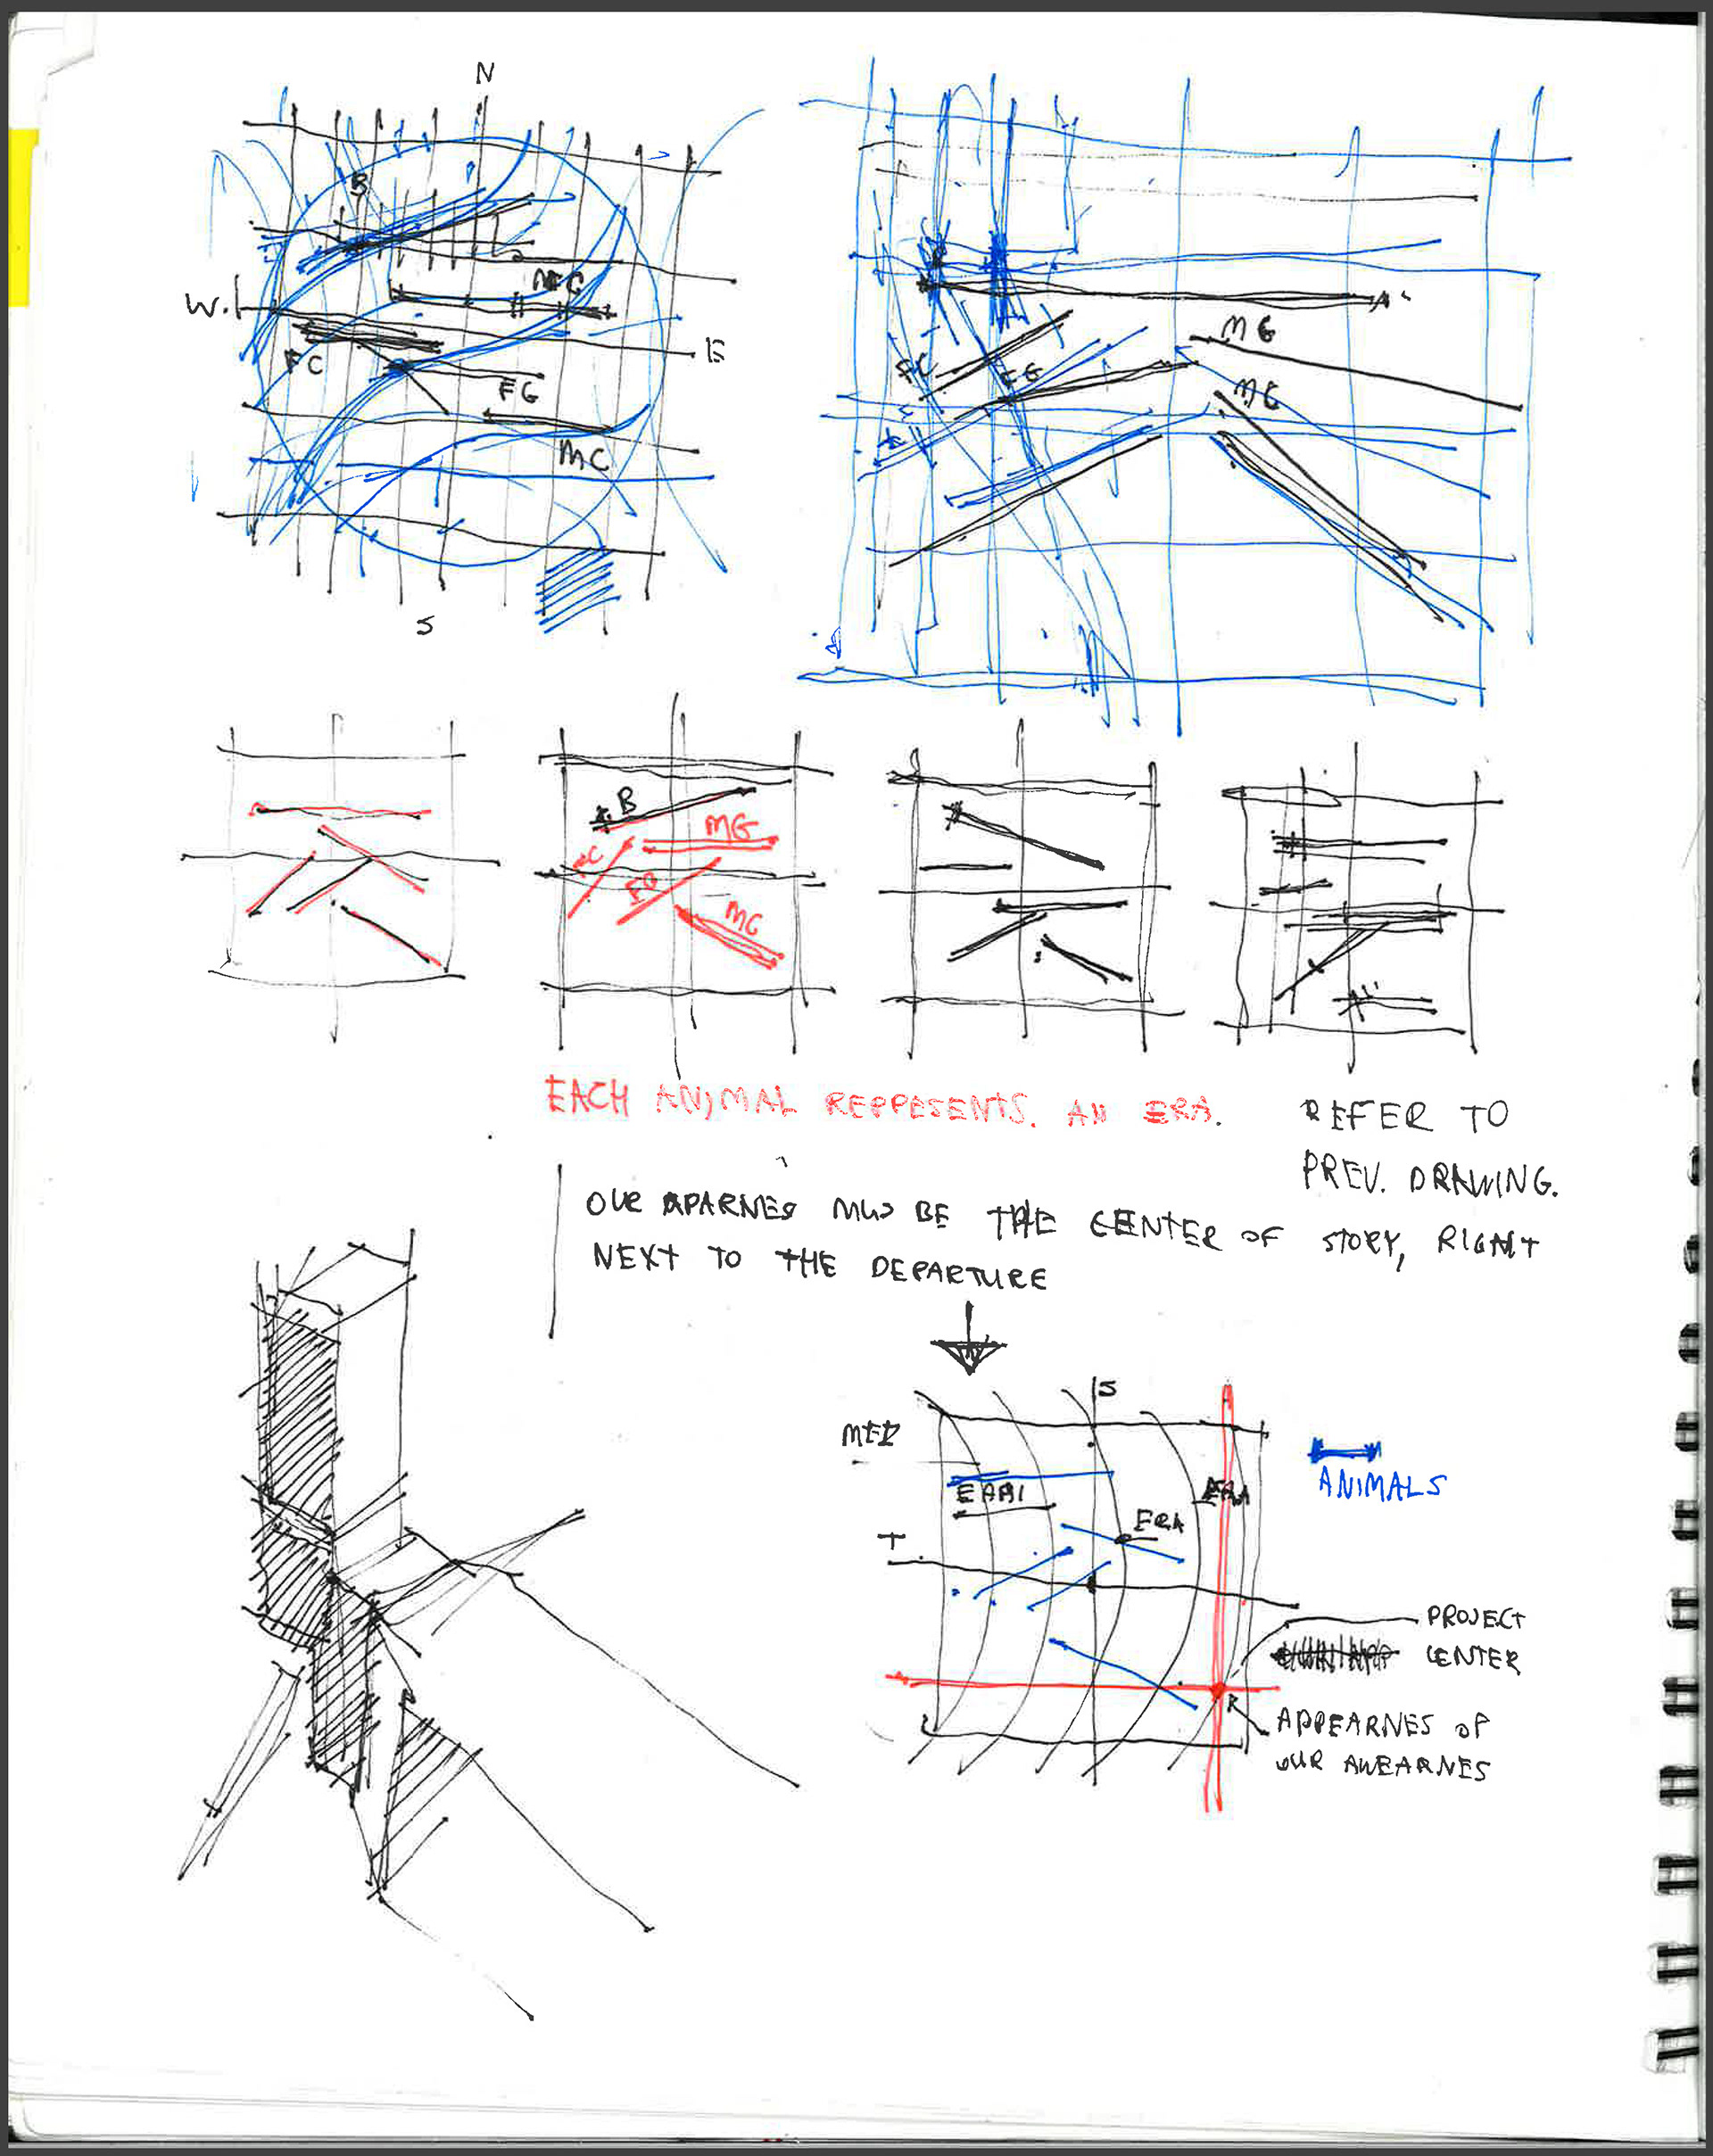 N
B
MC
W.
E
FC
FG
MC
S
A'
MG
FC
FG
MG
B
MG
FG
MC
EACH ANIMAL REPPESENTS. AN ERA.
REFER TO
PREV. DRAWING.
OUR APARNES MUS BE THE CENTER OF STORY, RIGHT
NEXT TO THE DEPARTURE
S
ERA
ERA
T
ANIMALS
PROJECT
CENTER
R
APPEARNES OF
OUR AWEARNES